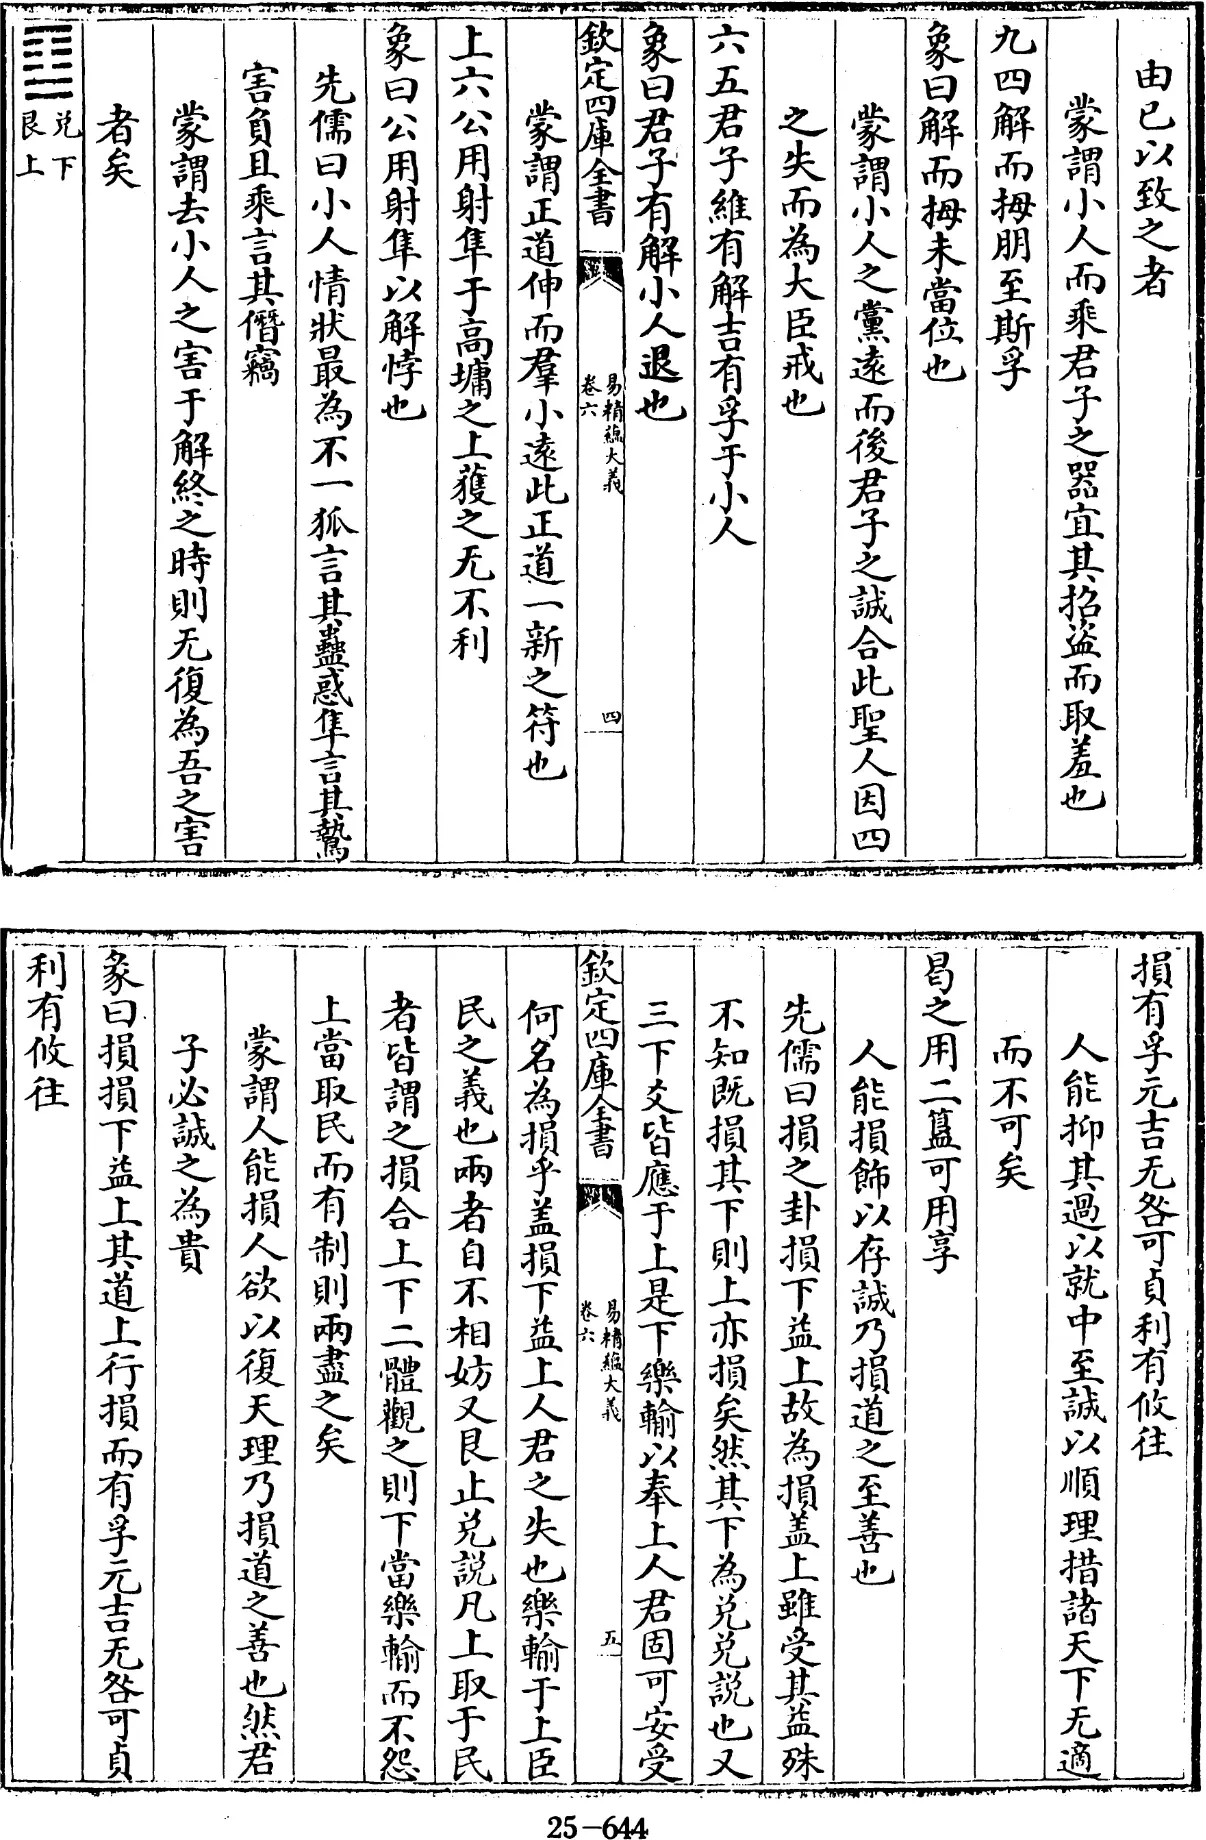 由已以致之者
蒙謂小人而乘君子之器宜其招盜而取羞也
九四解而拇朋至斯孚
象曰解而拇未當位也
蒙謂小人之黨遠而後君子之誠合此聖人因四
之失而為大臣戒也
六五君子維有解吉有孚于小人
象曰君子有解小人退也
欽定四庫全書
易精蘊大義
卷六
四
蒙謂正道伸而羣小遠此正道一新之符也
上六公用射隼于高墉之上獲之无不利
象曰公用射隼以解悖也
先儒曰小人情狀最為不一狐言其蠱惑隼言其鷙
害負且乘言其僭竊
蒙謂去小人之害于解終之時則无復為吾之害
者矣
兌下
艮上
損有孚元吉无咎可貞利有攸往
人能抑其過以就中至誠以順理措諸天下无適
而不可矣
曷之用二簋可用享
人能損飾以存誠乃損道之至善也
先儒曰損之卦損下益上故為損蓋上雖受其益殊
不知既損其下則上亦損矣然其下為兌兌說也又
三下爻皆應于上是下樂輸以奉上人君固可安受
欽定四庫全書
易精蘊大義
卷六
五
何名為損乎蓋損下益上人君之失也樂輸于上臣
民之義也兩者自不相妨又艮止兌說凡上取于民
者皆謂之損合上下二體觀之則下當樂輸而不怨
上當取民而有制則兩盡之矣
蒙謂人能損人欲以復天理乃損道之善也然君
子必誠之為貴
彖曰損損下益上其道上行損而有孚元吉无咎可貞
利有攸往
25-644